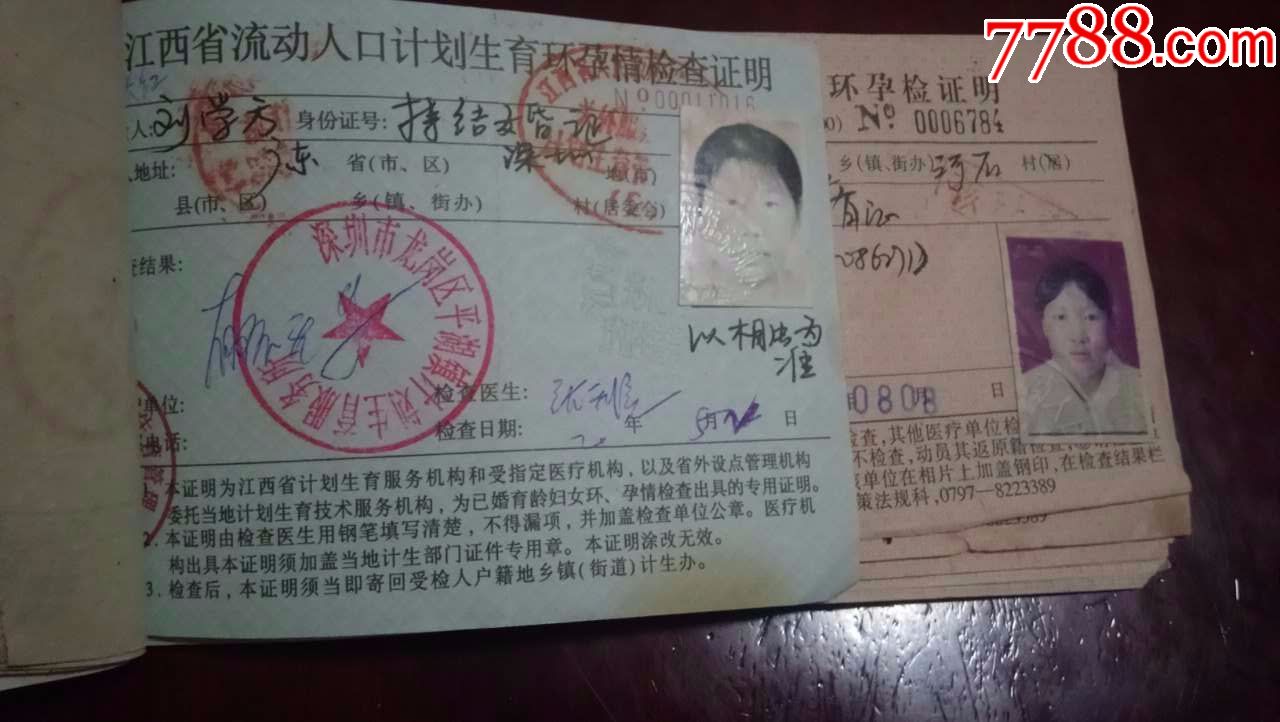 7788.com
江西省流动人口计划生育环孕情检查证明
№00011016
人: 刘学方 身份证号: 持结婚证
地址: 广东 省(市、区) 深圳 地(市)
县(市、区) 乡(镇、街办) 村(居委会)
查结果:
深圳市龙岗区平湖镇计划生育服务所
以相片为
准
单位:
检查医生:
电话:
检查日期: 年 5月 日
1. 本证明为江西省计划生育服务机构和受指定医疗机构，以及省外设点管理机构
委托当地计划生育技术服务机构，为已婚育龄妇女环、孕情检查出具的专用证明。
2. 本证明由检查医生用钢笔填写清楚，不得漏项，并加盖检查单位公章。医疗机
构出具本证明须加盖当地计生部门证件专用章。本证明涂改无效。
3. 检查后，本证明须当即寄回受检人户籍地乡镇(街道)计生办。
环孕检证明
№ 0006784
乡(镇、街办) 村(居)
0808
月 日
检查,其他医疗单位检
不检查,动员其返原籍检查
单位在相片上加盖钢印,在检查结果栏
策法规科,0797—8223389
8223389